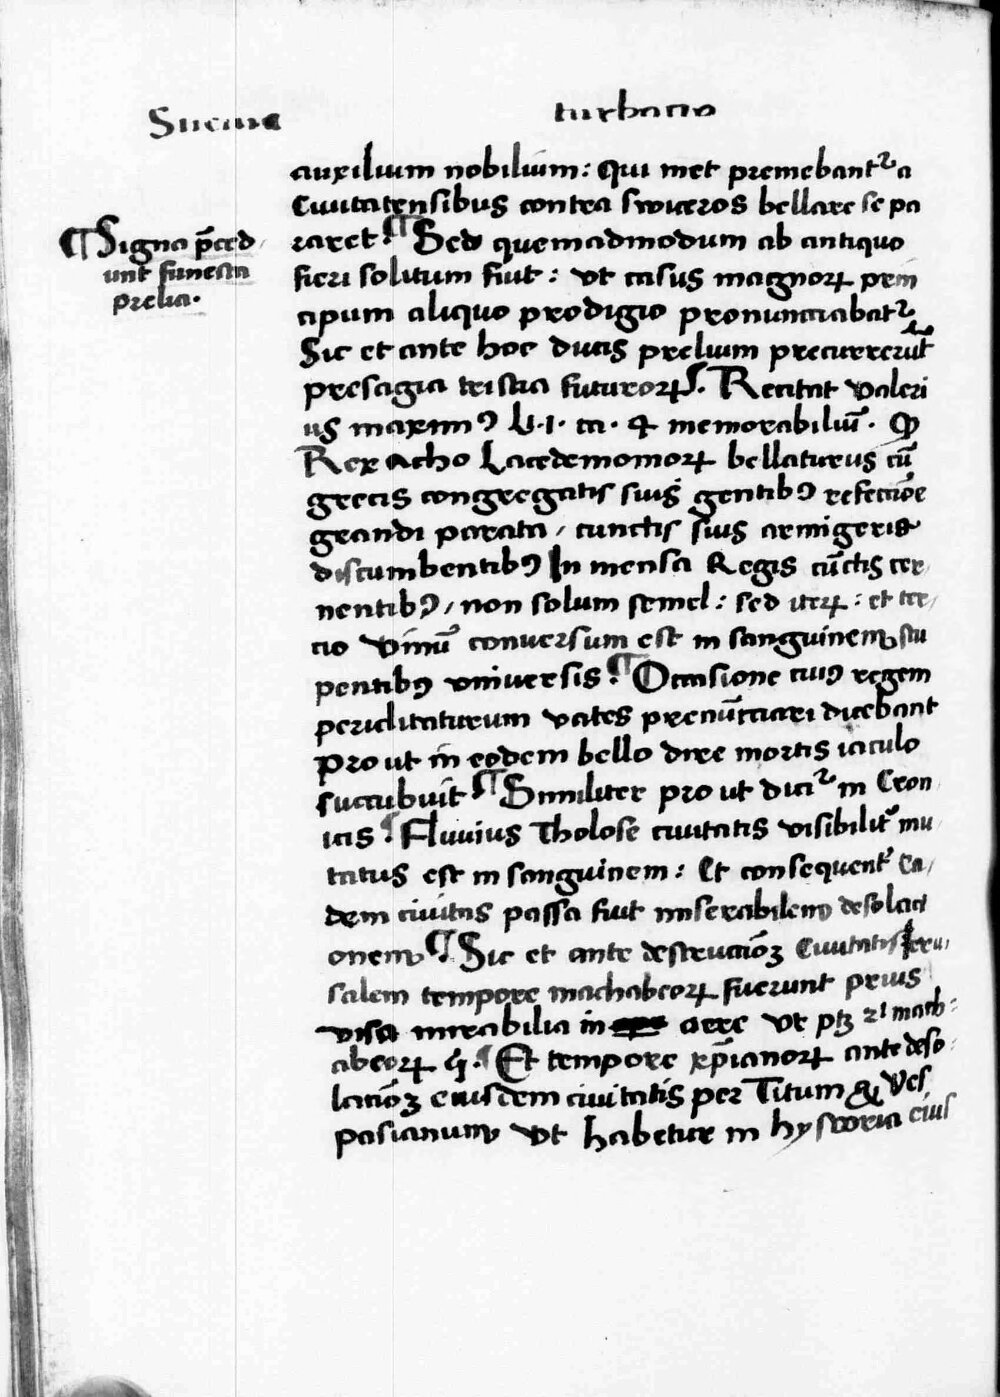 turbacio
auxilium nobilium: Qui met premebantᷣ a
Ciuitatensibus contra switeros bellare se pa
raret. ¶ Sed quemadmodum ab antiquo
¶ Signa p̄ced
unt funesta
prelia.
fieri solitum fiut: vt casus magnorꝝ prin
cipum aliquo prodigio pronunciabatᷣ
Sic et ante hoc ducis prelium precurrerūt
presagia tristia futurorꝝ. Recitat valeri
us maximꝰ L. I. ca. 4 memorabiliū.
Rex Lacedemoniorꝝ bellaturus cū
grecis congregatis suis gentibꝰ refectiōe
grandi parata / cunctis suis armigeris
discumbentibꝰ In mensa Regis cūctis cer
nentibꝰ / non solum semel: sed iterꝝ: et ter
cio vinū conuersum est in sanguinem stu
pentibꝰ vniuersis ¶ Occasione cuiꝰ regem
periclitaturum vates prenūciari dicebant
pro ut in eodem bello dire mortis iaculo
succubuit ¶ Similiter pro ut diciᷣ in Cron
icis ¶ Fluuius Tholose ciuitatis visibilitᷣ mu
tatus est in sanguinem: Et consequentᷣ Ea
dem ciuitas passa fiut miserabilem desolaci
onem ¶ Sic et ante destrucciōꝫ Ciuitatis Jeru
salem tempore machabeorꝝ fuerunt prius
visa mirabilia in aere vt ptꝫ 2i mach
abeorꝝ ¶ Et tempore xp̄ianorꝝ ante deso
laciōꝫ eiusdem ciuitatis per Titum & Ves
pasianum vt habetur in hystoria eius